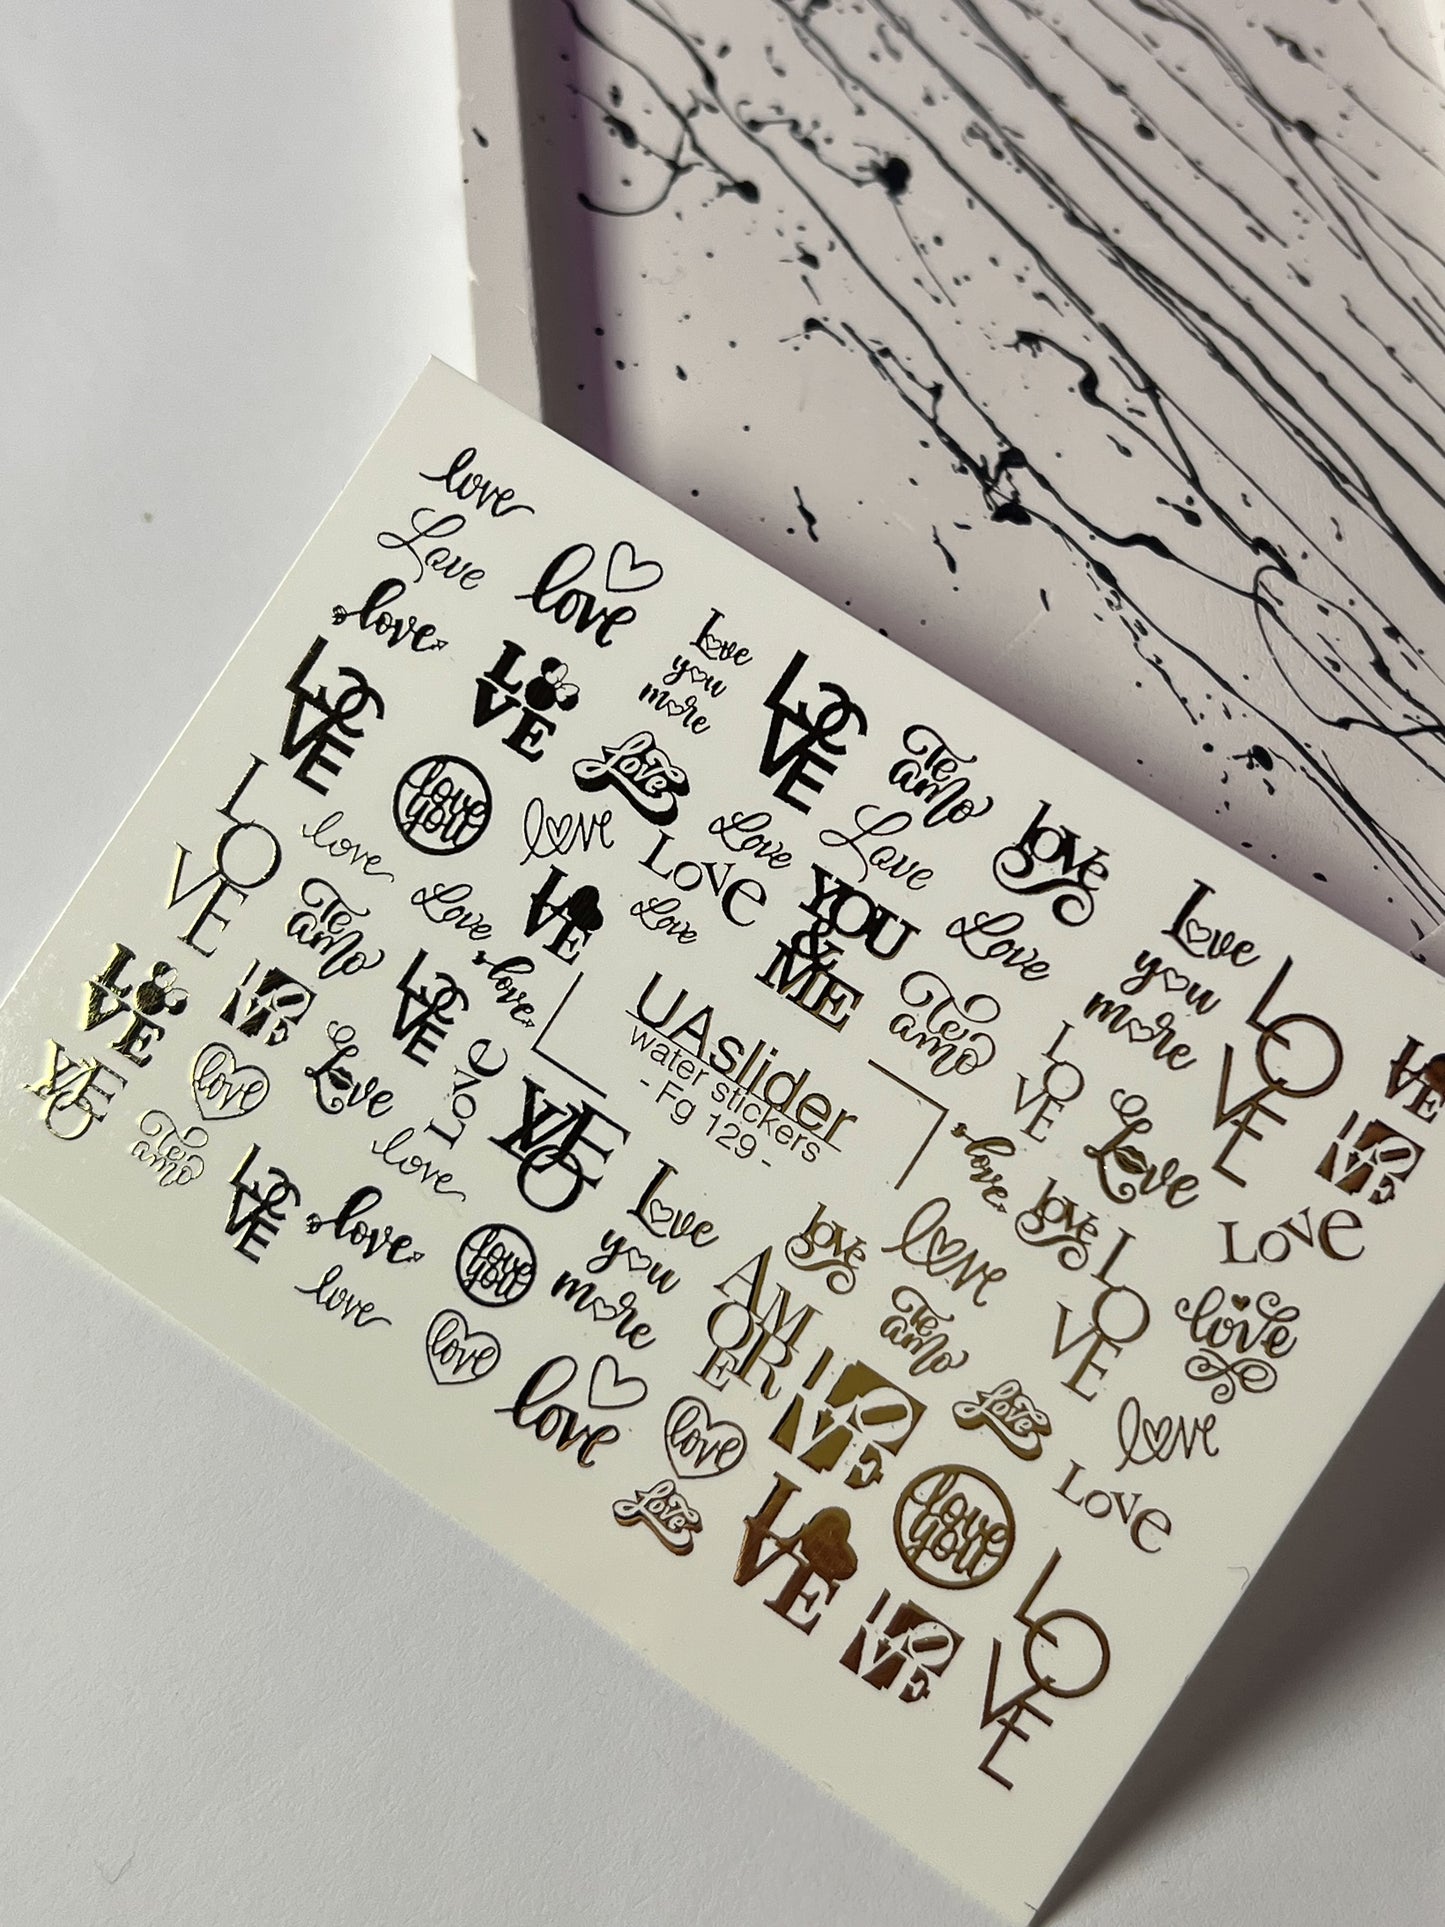 love
Love
love
love
Love
you
more
LO
VE
LO
VE
LO
VE
Te
amo
Love
love
you
Love
love
Love
Love
Love
LOVE
Love
YOU
&
ME
Love
Love
you
more
L
O
VE
love
Te
amo
Love
LO
VE
love
LO
VE
UAslider
water stickers
- Fg 129 -
Te
amo
L
O
VE
Love
LO
VE
L
O
V
E
L
LO
VE
LO
VE
LO
VE
love
Love
LOVE
love
LO
VE
love
love
Love
L
O
VE
LOVE
love
Te
amo
LO
VE
love
love
you
Love
you
more
Love
love
Te
amo
AM
OR
E
love
love
love
love
LO
VE
Love
love
LOVE
Love
LO
VE
love
you
LO
VE
L
O
V
E
L